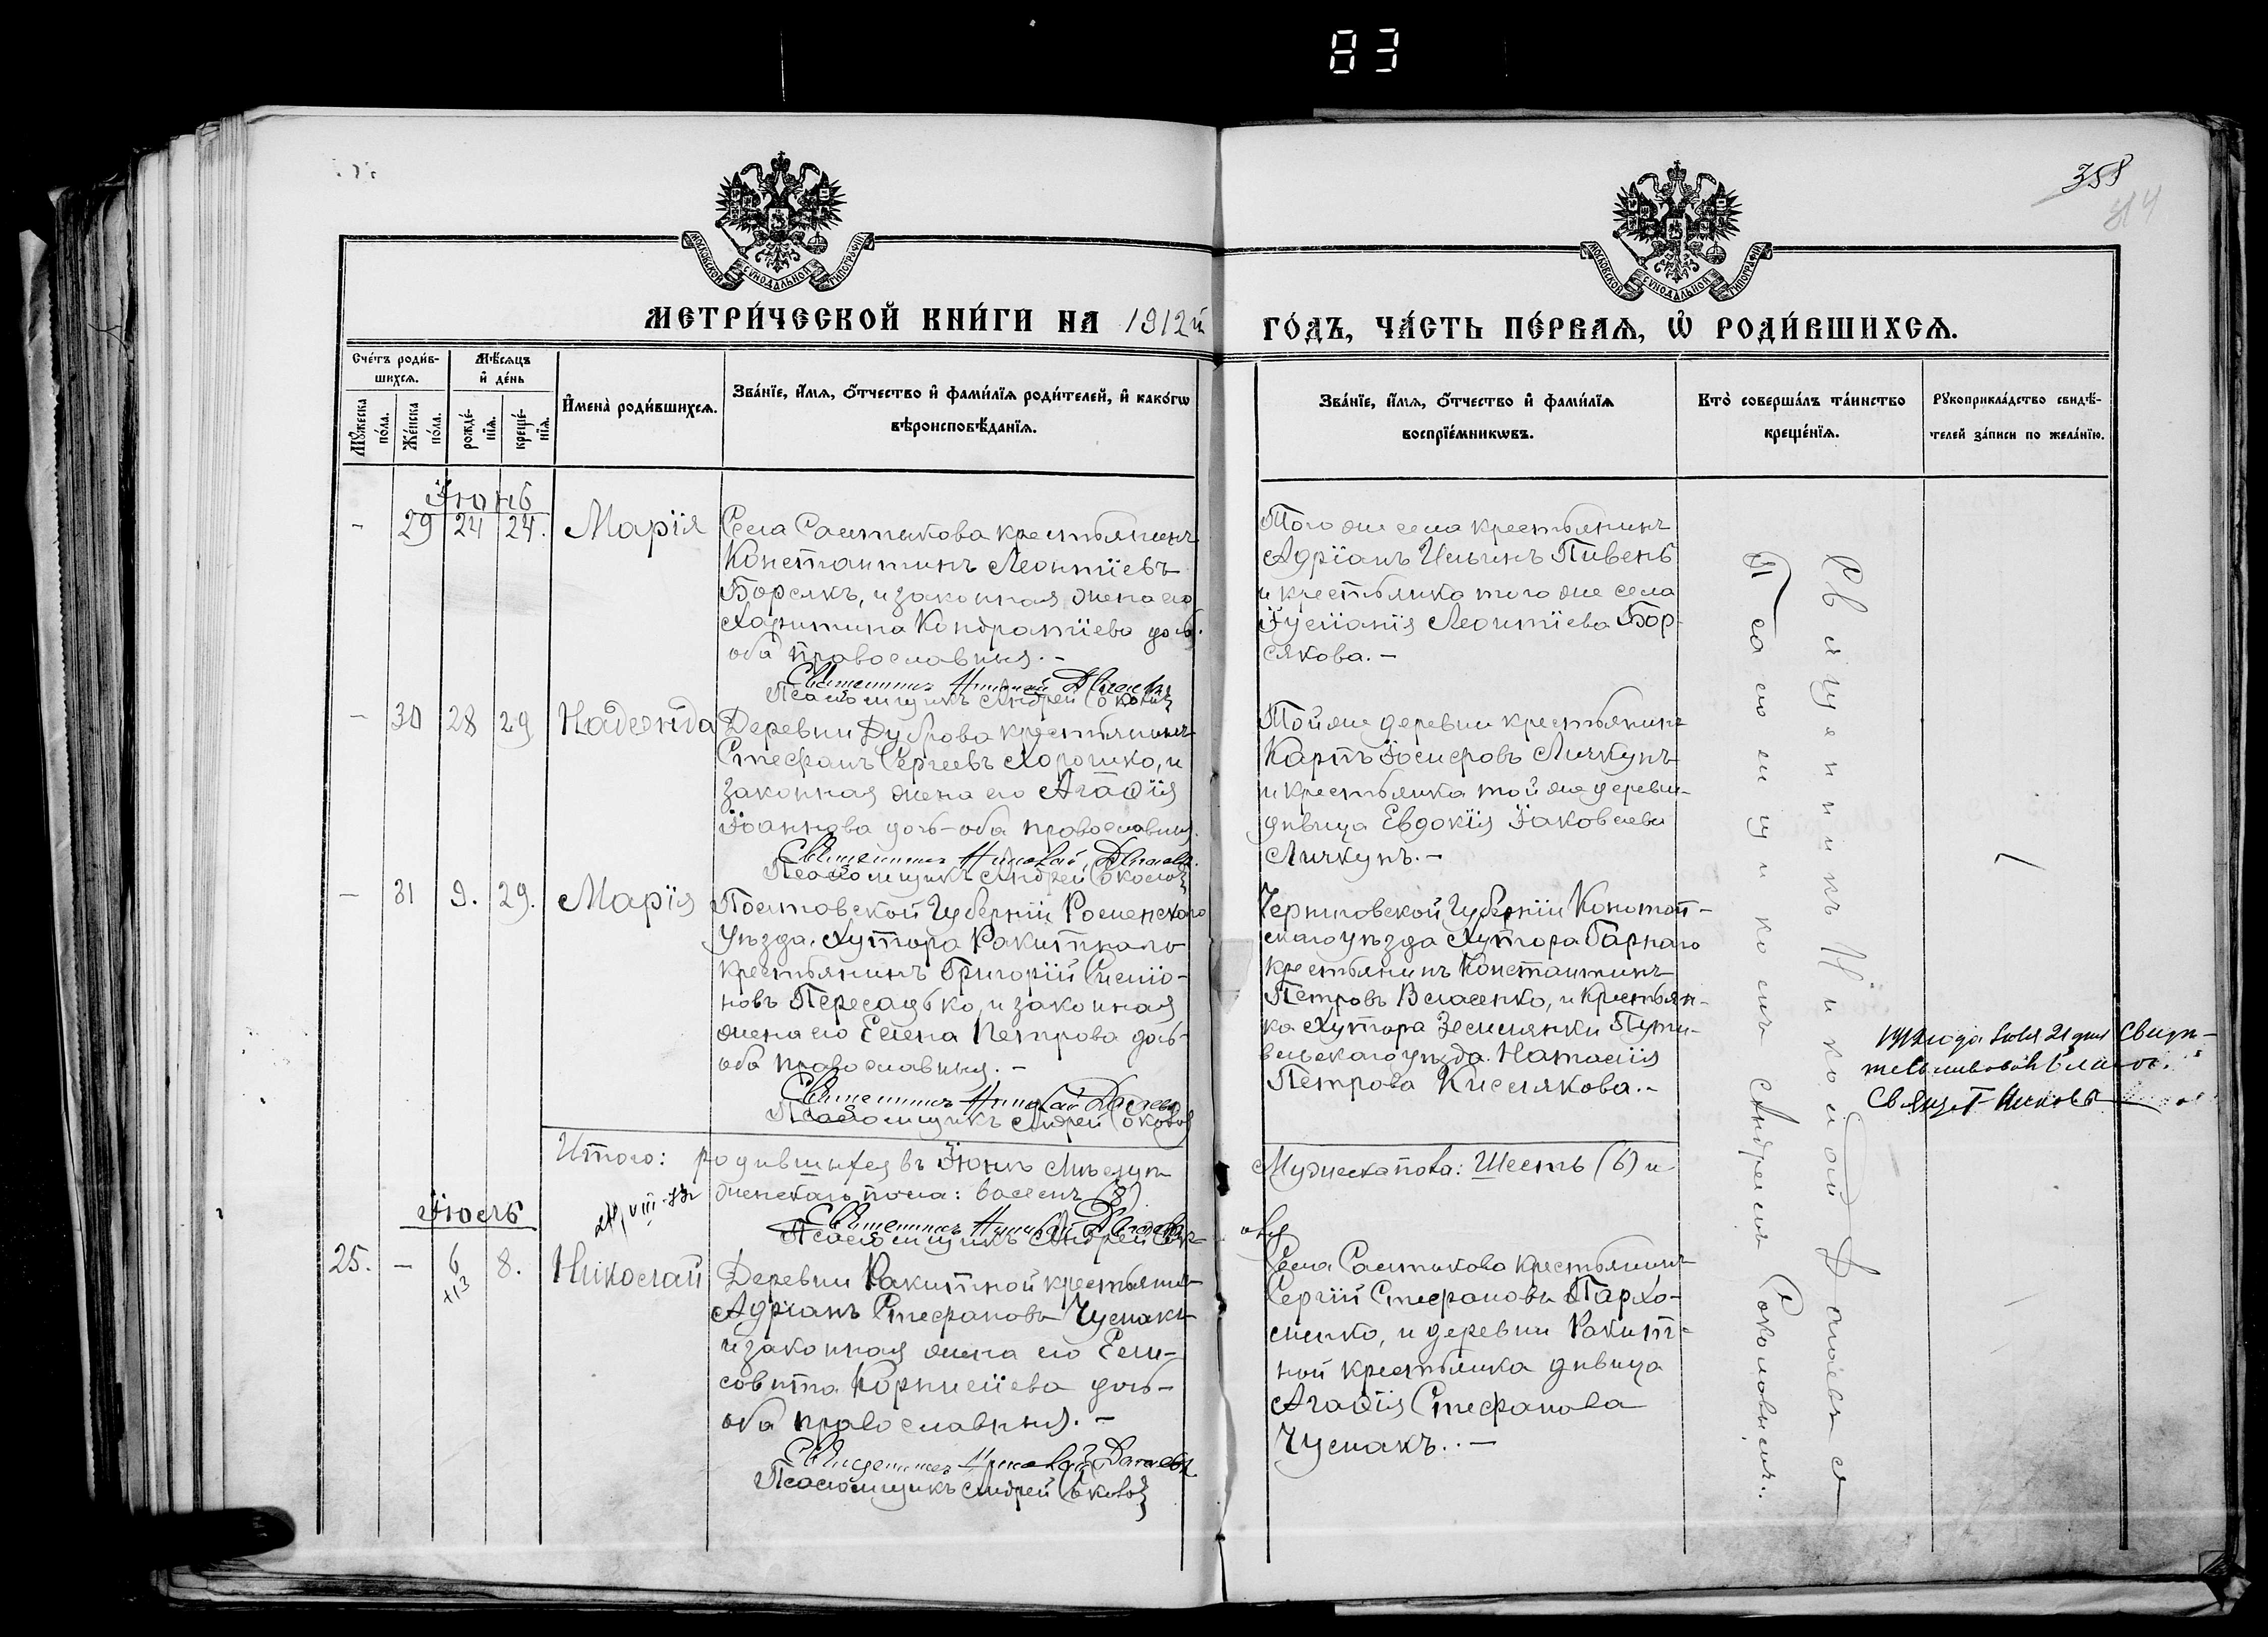 83
358
МОСКОВСКОЙ СУНОДАЛЬНОЙ ТИПОГРАФІИ
МОСКОВСКОЙ СУНОДАЛЬНОЙ ТИПОГРАФІИ
МЕТРИ́ЧЕСКОЙ КНИ́ГИ НА 1912й
ГО́ДЪ, ЧА́СТЬ ПЕ́РВАЯ, Ѡ҆ РОДИ́ВШИХСЯ.
Сче́тъ роди́в-
шихся.
Мꙋ́жеска по́ла.
Же́нска по́ла.
Мѣ́сяцъ
и҆ де́нь
рожде́-
нїя.
креще́-
нїя.
И҆мена̀ роди́вшихся.
Зва́нїе, и҆́мя, ѻ҆́тчество и҆ фами́лїя роди́телей, и҆ како́гѡ
вѣроисповѣ́данїя.
Зва́нїе, и҆́мя, ѻ҆́тчество и҆ фами́лїя
воспрїе́мникѡвъ.
Кто̀ соверша́лъ та́инство
креще́нїя.
Рꙋкоприкла́дство свидѣ́-
телей за́писи по жела́нїю.
Іюнь
- 29 24 24. Марія
Села Салтыкова крестьянинъ
Константинъ Леонтіевъ
Борсякъ, и законная жена его
Харитина Кондратіева доч.
оба православныя. -
Священникъ Николай Данаевъ
Псаломщикъ Андрей Соколов
Того же села крестьянинъ
Адріанъ Ильинъ Пивень
и крестьянка того же села
Іуліанія Леонтіева Бор-
сякова. -
- 30 28 29 Надежда
Деревни Дуброва крестьянинъ
Стефанъ Сергеевъ Хорошко, и
законная жена его Агаѳія
Іоаннова дочь - оба православныя.
Священникъ Николай Данаевъ.
Псаломщикъ Андрей Соколов
Той же деревни крестьянинъ
Карпъ Іосифовъ Личкунъ
и крестьянка той же деревни
дѣвица Евдокія Іаковлева
Личкунъ. -
- 31 9. 29. Марія
Полтавской Губерніи Роменскаго
Уѣзда, Хутора Ракитнаго
крестьянинъ Григорій Симіо-
новъ Пересадько, и законная
жена его Елена Петрова дочь-
оба православныя. -
Священникъ Николай Данаевъ
Псаломщикъ Андрей Соколов
Черниговской Губерніи Конотоп-
скаго уѣзда Хутора Гарнаго
крестьянинъ Константинъ
Петровъ Власенко, и крестьян-
ка Хутора Землянки Пути-
вльскаго уѣзда Наталія
Петрова Кислякова. -
1912 года Іюля 21 дня Свидѣ-
Итого: родившихся въ Іюнѣ мѣсяцѣ
Мужеска пола: Шесть (6) и
женскаго пола: восемь (8)
Священникъ Николай Данаевъ
Псаломщикъ Андрей Сок-
оловъ
Іюль
25. - 6 8. Николай
+13
Деревни Ракитной крестьянинъ
Адріанъ Стефановъ Чумакъ
и законная жена его Ели-
совѣта Корниліева дочь-
оба православныя. -
Священникъ Николай Данаевъ
Псаломщикъ Андрей Соколов
Села Салтыкова крестьянинъ
Сергій Стефановъ Пархо-
менко, и деревни Ракит-
ной крестьянка дѣвица
Агаѳія Стефанова
Чумакъ.. -
Священникъ Николай Данаевъ съ
Псаломщикомъ Андреемъ Соколовымъ.